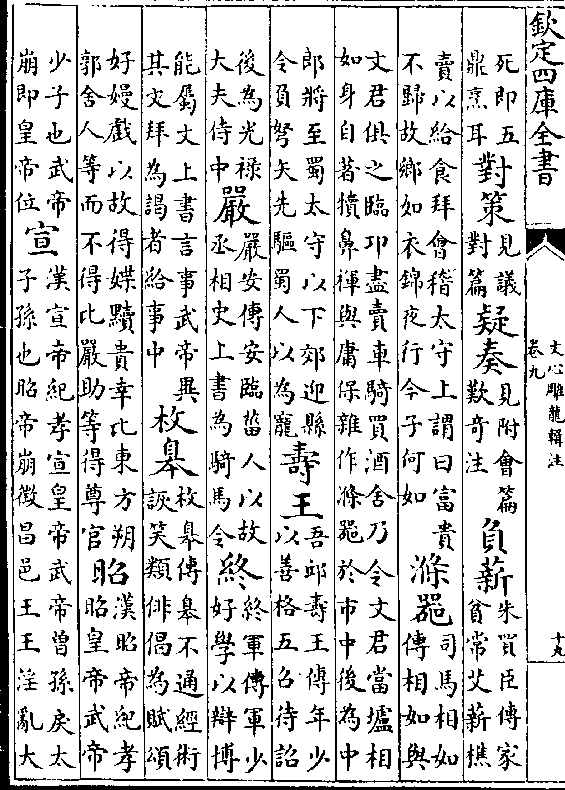 欽定四庫全書
文心雕龍輯注
卷九
十九
死即五鼎烹耳對策見議對篇疑奏見附會篇歎奇注負薪朱買臣傳家貧常艾薪樵
賣以給食拜會稽太守上謂曰富貴不歸故鄉如衣錦夜行今子何如滌器司馬相如傳相如與
文君俱之臨邛盡賣車騎買酒舍乃令文君當壚相如身自著犢鼻褌與庸保雜作滌器於市中後為中
郎將至蜀太守以下郊迎縣令負弩矢先驅蜀人以為寵壽王吾邱壽王傳年少以善格五召待詔
後為光祿大夫侍中嚴嚴安傳安臨菑人以故丞相史上書為騎馬令終終軍傳軍少好學以辯博
能屬文上書言事武帝異其文拜為謁者給事中枚皋枚皋傳皋不通經術詼笑類俳倡為賦頌
好嫚戲以故得媟黷貴幸比東方朔郭舍人等而不得比嚴助等得尊官昭漢昭帝紀孝昭皇帝武帝
少子也武帝崩即皇帝位宣漢宣帝紀孝宣皇帝武帝曾孫戾太子孫也昭帝崩徵昌邑王王淫亂大